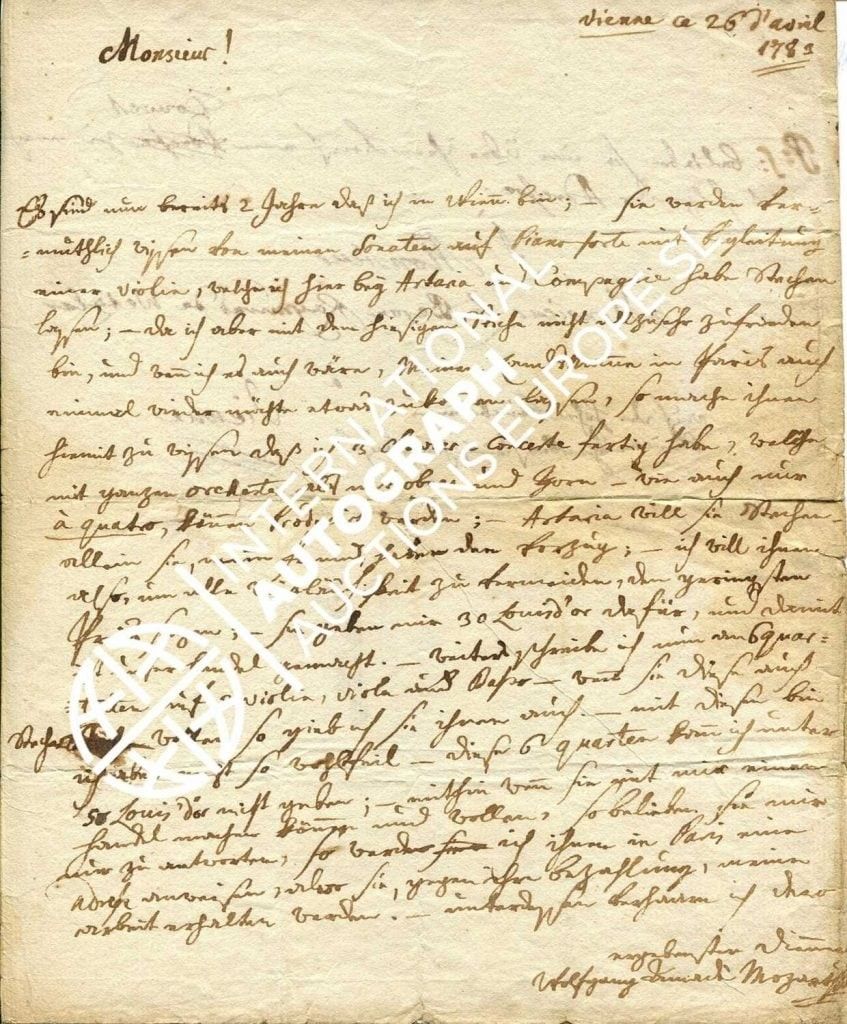 Vienne ce 26 d'avril
1783
Monsieur!
Es sind nun bereits 2 Jahre daß ich in Wienn bin; – sie werden ver=
=muthlich wissen von meinen Sonaten auf Piano forte mit begleitung
einer Violin, welche ich hier bey Artaria und Compagnie habe Stechen
lassen; – da ich aber mit dem hiesigen Stiche nicht allzusehr zufrieden
bin, und wenn ich es auch wäre, Meinen in Paris auch
einmal wieder möchte etwas zukommen lassen, so mache ihnen
hiemit zu wissen daß ich 3 Clavier Concerte fertig habe, welche
mit ganzen orchestre, als mit oboen und Horn – wie auch nur
à quatro, können werden; – Artaria will sie Stechen.
allein sie, mein haben den vorzug; – ich will ihnen
also, um alle Weitläufigkeit zu vermeiden, den geringsten
Preis sagen; – sie geben mir 30 Louis d'or dafür, und damit
ist unser handel gemacht. – weiters schreibe ich nun an 6 quar=
=tetten auf 2 violin, viola und Basso – wenn sie diese auch
Stechen wollen so gieb ich sie ihnen auch. – mit diesen bin
ich aber nicht so wohlfeil – diese 6 quartetten kann ich unter
50 Louis d'or nicht geben; – mithin wenn sie mit mir einen
handel machen können und wollen, so belieben sie mir
nur zu antworten, so werde ich ihnen in Paris eine
adresse anweisen, alwo sie, gegen ihre bezahlung, meine
arbeit erhalten werden. – unterdessen verharre ich dero
ergebenster Diener
Wolfgang Amadè Mozart
INTERNATIONAL
AUTOGRAPH
AUCTIONS EUROPE SL